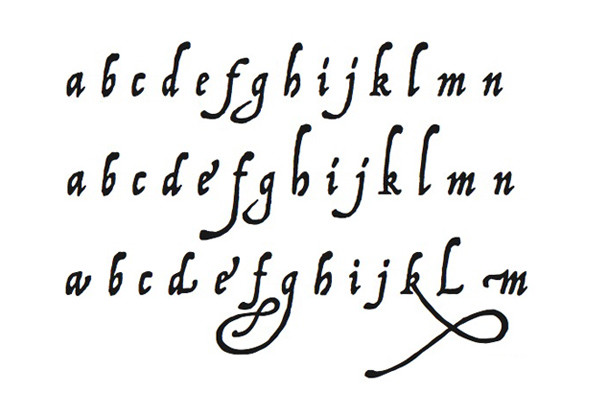 a b c d e f g h i j k l m n
a b c d e f g h i j k l m n
a b c d e f g h i j k l m